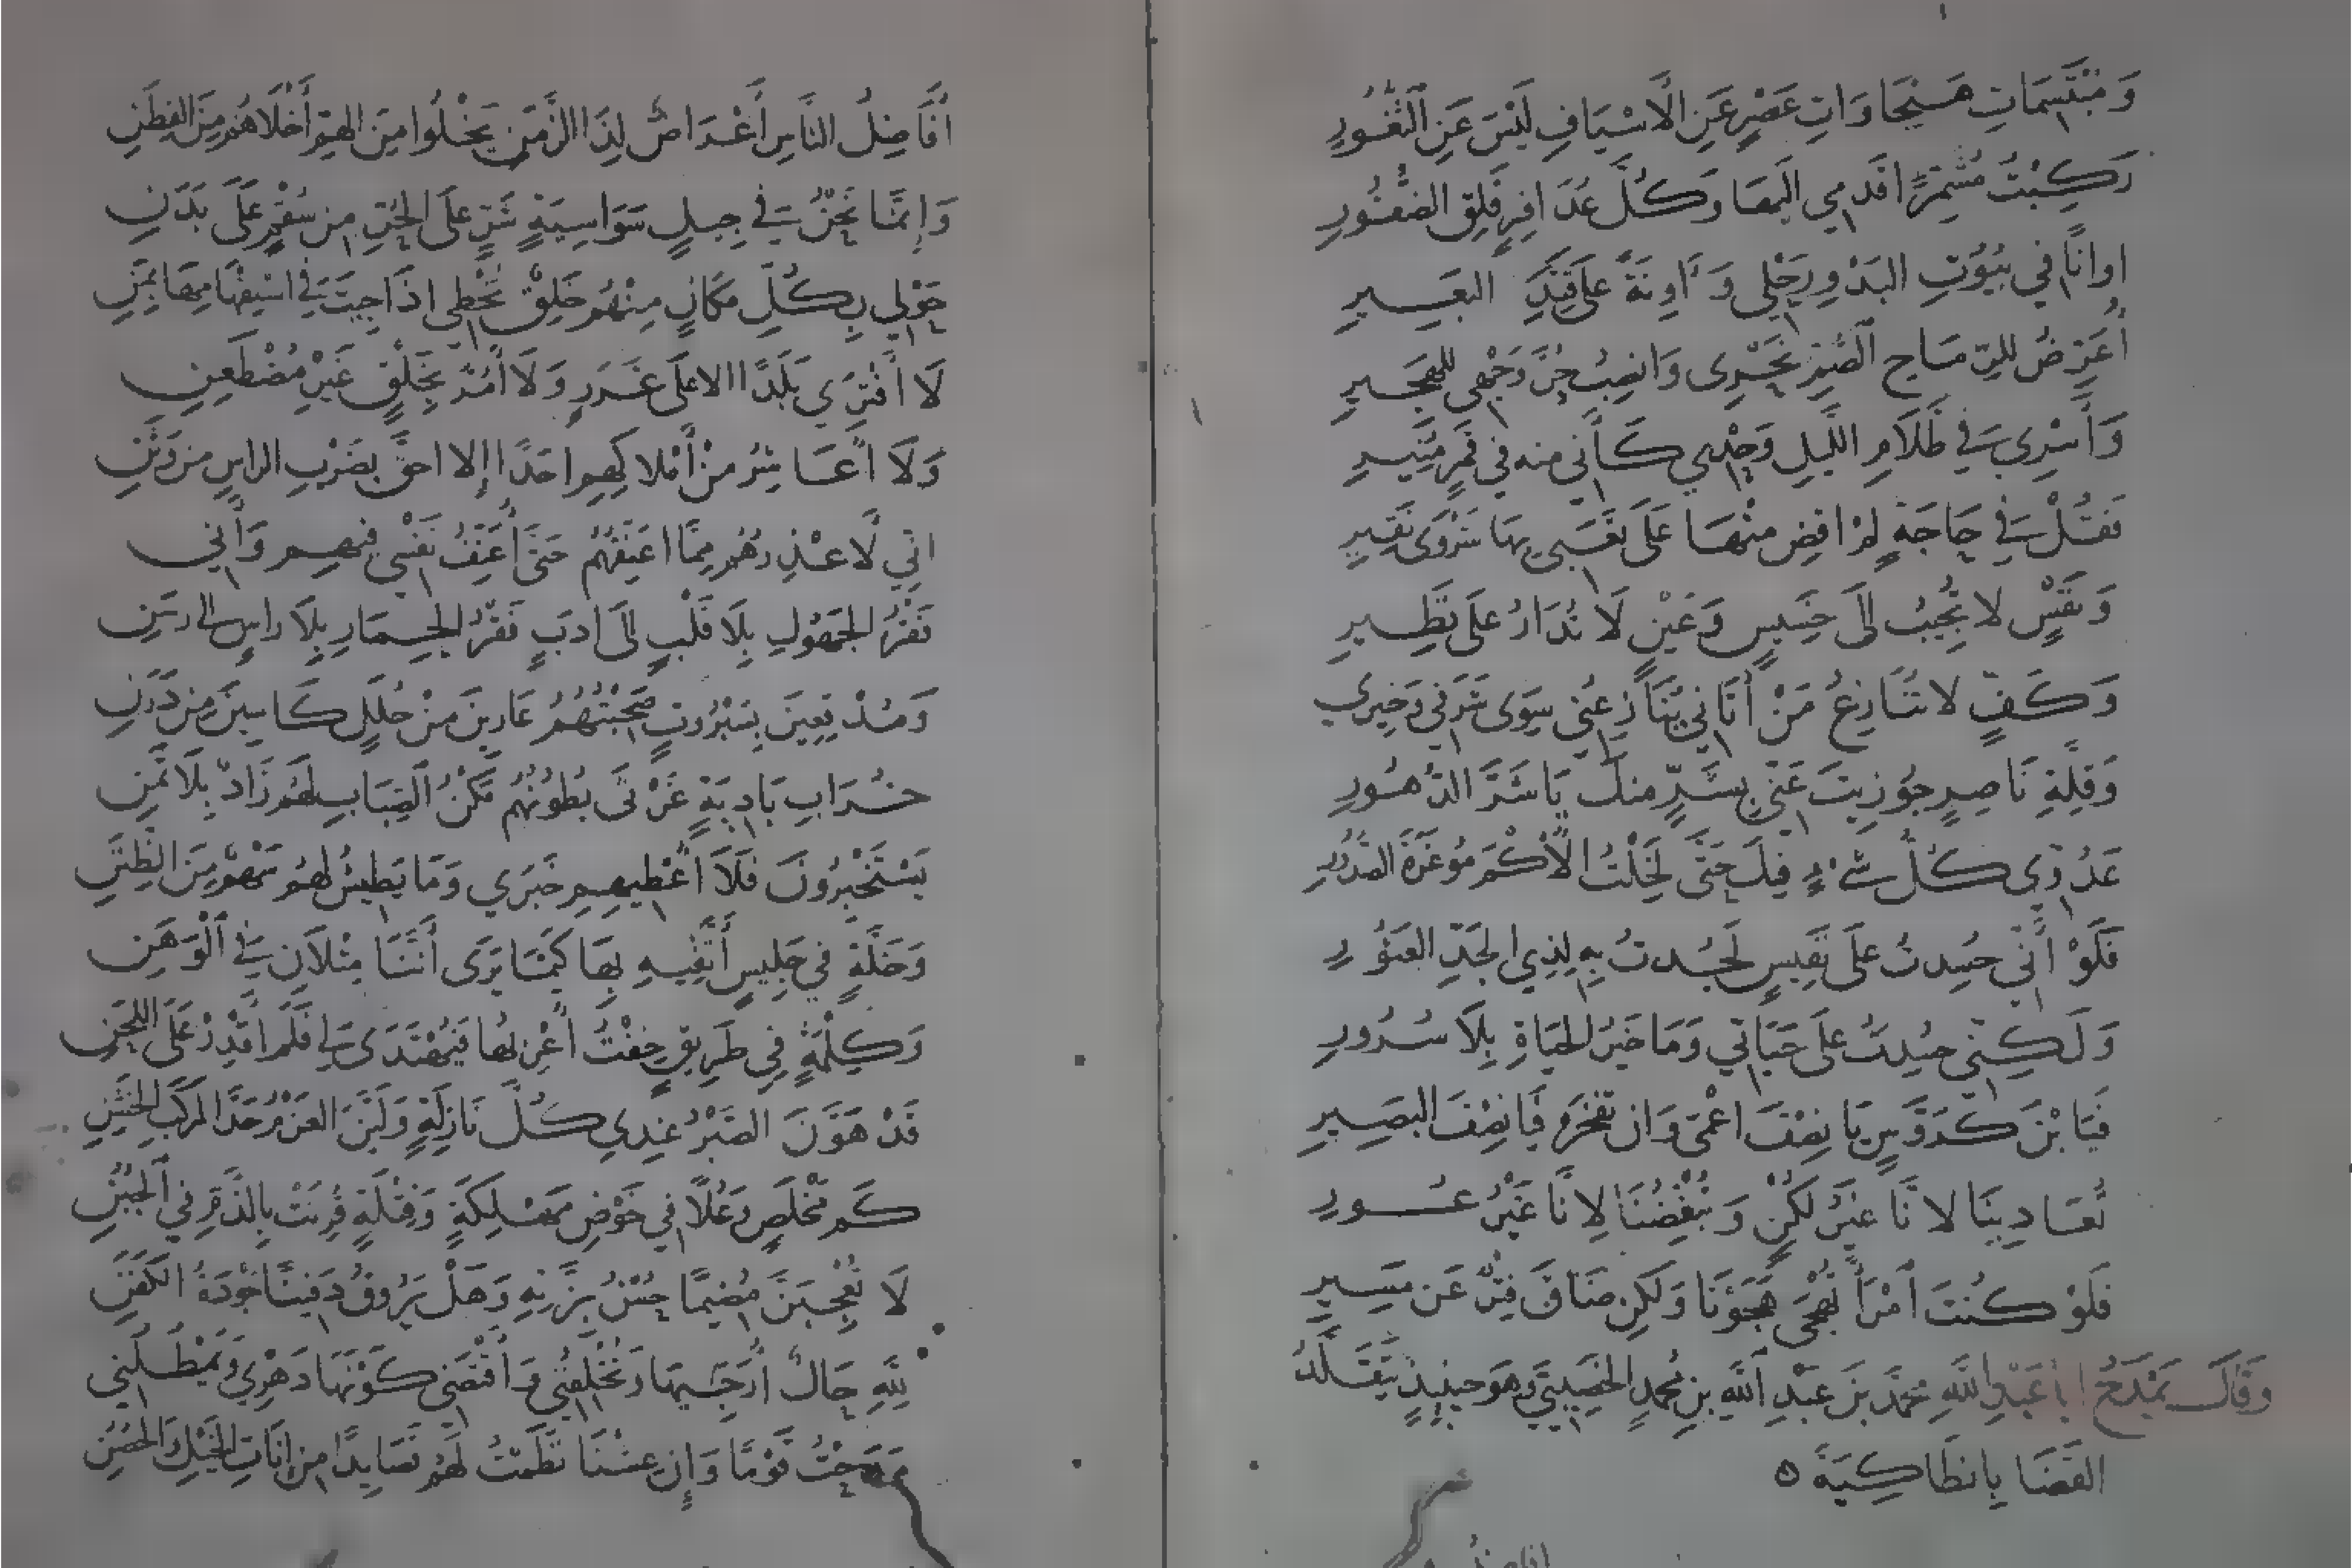 وَمُبْتَسِمَاتِ هَيْجَاوَاتِ عَصْرٍ عَنِ الْاسْيَافِ لَيْسَ عَنِ الثُّغُورِ
رَكِبْتُ مُشَمِّرًا قَدَمِي الَيهَا وَكُلَّ عُذَافِرٍ قَلِقِ الضُّفُورِ
اوانًا في بُيُوتِ البَدْوِ رَحْلِي وَآوِنَةً عَلَى قَتَدِ البَعِيرِ
أُعَرِّضُ للرِّمَاحِ الصُّمِّ نَحْرِى وَانصِبُ حُرَّ وَجْهِي للهَجِيرِ
وَأَسْرِي في ظَلَامِ اللَّيلِ وَحْدِي كَأَنِّي منه في قَمَرٍ مُنِيرِ
فَقُلْ في حَاجَةٍ لَمْ اقضِ مِنْهَا عَلَى تَعَبِي بِهَا شَرْوَى نَقِيرِ
وَنَفْسٍ لا تُجِيبُ الَى خَسِيسٍ وَعَيْنٍ لَا تُدَارُ عَلَى نَظِيرِ
وَكَفٍّ لا تُنَازِعُ مَنْ أَتَانِي يُنَازِعُنِي سِوَى شَرَفِي وَخِيرِي
وَقِلَّةِ نَاصِرٍ جُوزِيتَ عَنِّي بِشَرٍّ منكَ يَا شَرَّ الدُّهُورِ
عَدُوِّي كُلُّ شَيْءٍ فِيكَ حَتَّى لَخِلْتُ الْأُكْمَ مُوغَرَةَ الصُّدُورِ
فَلَوْ أَنِّي حُسِدتُ عَلَى نَفِيسٍ لَجُدتُ بِهِ لِذِي الجَدِّ العَثُورِ
وَلَكِنِّي حُسِدتُ عَلَى حَيَاتِي وَمَا خَيْرُ الحَيَاةِ بِلَا سُرُورِ
فَيَا بْنَ كَرَوَّسٍ يَا نِصْفَ اعْمَى وَان تَفْخَرْ فَيَا نِصْفَ البَصِيرِ
تُعَادِينَا لانَّا غَيْرُ لُكْنٍ وَتُبْغِضُنَا لِانَّا غَيْرُ عُورِ
فَلَوْ كُنْتَ أمْرَأً تُهْجَى هَجَوْنَا وَلَكِن ضَاقَ فِتْرٌ عَن مَسِيرِ
وَقَالَ يَمْدَحُ ابا عَبْدِ اللَّهِ مُحَمَّدَ بنَ عَبْدِ اللَّهِ بنِ مُحمدٍ الخَصِيبِيَّ وَهوَ حينَيذٍ يَتَقَلَّدُ
القَضَا بِانطَاكِيَةَ ه
أَفَاضِلُ النَّاسِ أَغْرَاضٌ لِذَا الزَّمَنِ يَخْلُوا مِنَ الهَمِّ أَخْلَاهُم مِنَ الفِطَنِ
وَإِنَّمَا نَحْنُ في جِيلٍ سَوَاسِيَةٍ شَرٍّ عَلَى الحُرِّ مِن سُقْمٍ عَلَى بَدَنِ
حَوْلِي بِكُلِّ مَكَانٍ مِنْهُم خَلِقٌ تُخْطِي اذَا جِيتَ في اسْتِفْهَامِهَا بِمَنِ
لَا أَقْتَرِي بَلَدًا الا عَلَى غَرَرٍ وَلَا أَمُرُّ بِخَلْقٍ غَيْرِ مُضْطَغِنِ
وَلَا أُعَاشِرُ مِنْ أَمْلاكِهِم احَدًا إلا احقَّ بِضَرْبِ الراسِ من وَثَنِ
انِّي لَأَعْذِرُهُم مِمَّا اعَنِّفُهُم حَتَّى أُعَنِّفُ نَفْسِي فِيهِم وَأَنِي
فَقْرُ الجَهُولِ بِلَا قَلْبٍ الَى ادَبٍ فَقْرُ الحِمَارِ بِلَا راسٍ الى رَسَنِ
وَمُدْقِعِينَ بِسُبْرُوتٍ صَحِبْتُهُمُ عَارِينَ مِنْ حُلَلٍ كَاسِينَ مِن دَرَنِ
خُرَّابِ بَادِيَةٍ غَرْثَى بُطُونُهُم مَكْنُ الضِّبَابِ لَهُم زَادٌ بِلَا ثَمَنِ
يَسْتَخْبِرُونَ فَلَا أُعْطِيهِمِ خَبَرِي وَمَا يَطِيشُ لَهُم سَهْمٌ مِنَ الظِّنَنِ
وَخَلَّةٍ فِي جَلِيسٍ أَتَّقِيهِ بِهَا كَيْمَا يَرَى أَنَّنَا مِثْلَانِ في الْوَهَنِ
وَكِلْمَةٍ فِي طَرِيقٍ خِفْتُ أُعْرِبُهَا فَيُهْتَدَى لِي فَلَم اقْدِرْ عَلَى اللَّحَنِ
قَدْ هَوَّنَ الصَّبْرُ عِندِي كُلَّ نَازِلَةٍ وَلَيَّنَ العَزْمُ حَدَّ المَرْكَبِ الخَشِنِ
كَم مَخْلَصٍ وَعُلًا فِي خَوْضِ مَهْلِكَةٍ وَقَتْلَةٍ قُرِنَتْ بِالذَّمِّ فِي الجُبُنِ
لَا يُعْجِبَنَّ مُضِيمًا حُسْنُ بِزَّتِهِ وَهَلْ يَرُوقُ دَفِينًا جَوْدَةُ الكَفَنِ
لِلَّهِ حَالٌ أُرَجِّيهَا وَتُخْلِفُنِي وَأَقْتَضِي كَوْنَهَا دَهْرِي وَيَمْطُلُنِي
مَدَحْتُ قَوْمًا وَإِن عِشْنَا نَظَمْتُ لَهُم قَصَايِدًا مِن إِنَاثِ الخَيْلِ وَالحُصُنِ